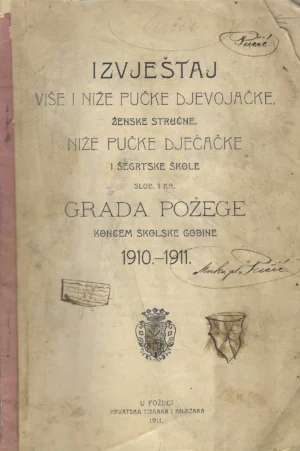 Pučić
IZVJEŠTAJ
VIŠE I NIŽE PUČKE DJEVOJAČKE,
ŽENSKE STRUČNE,
NIŽE PUČKE DJEČAČKE
I ŠEGRTSKE ŠKOLE
SLOB. I KR.
GRADA POŽEGE
KONCEM ŠKOLSKE GODINE
1910.-1911.
Pučić
U POŽEGI
HRVATSKA TISKARA I KNJIŽARA
1911.